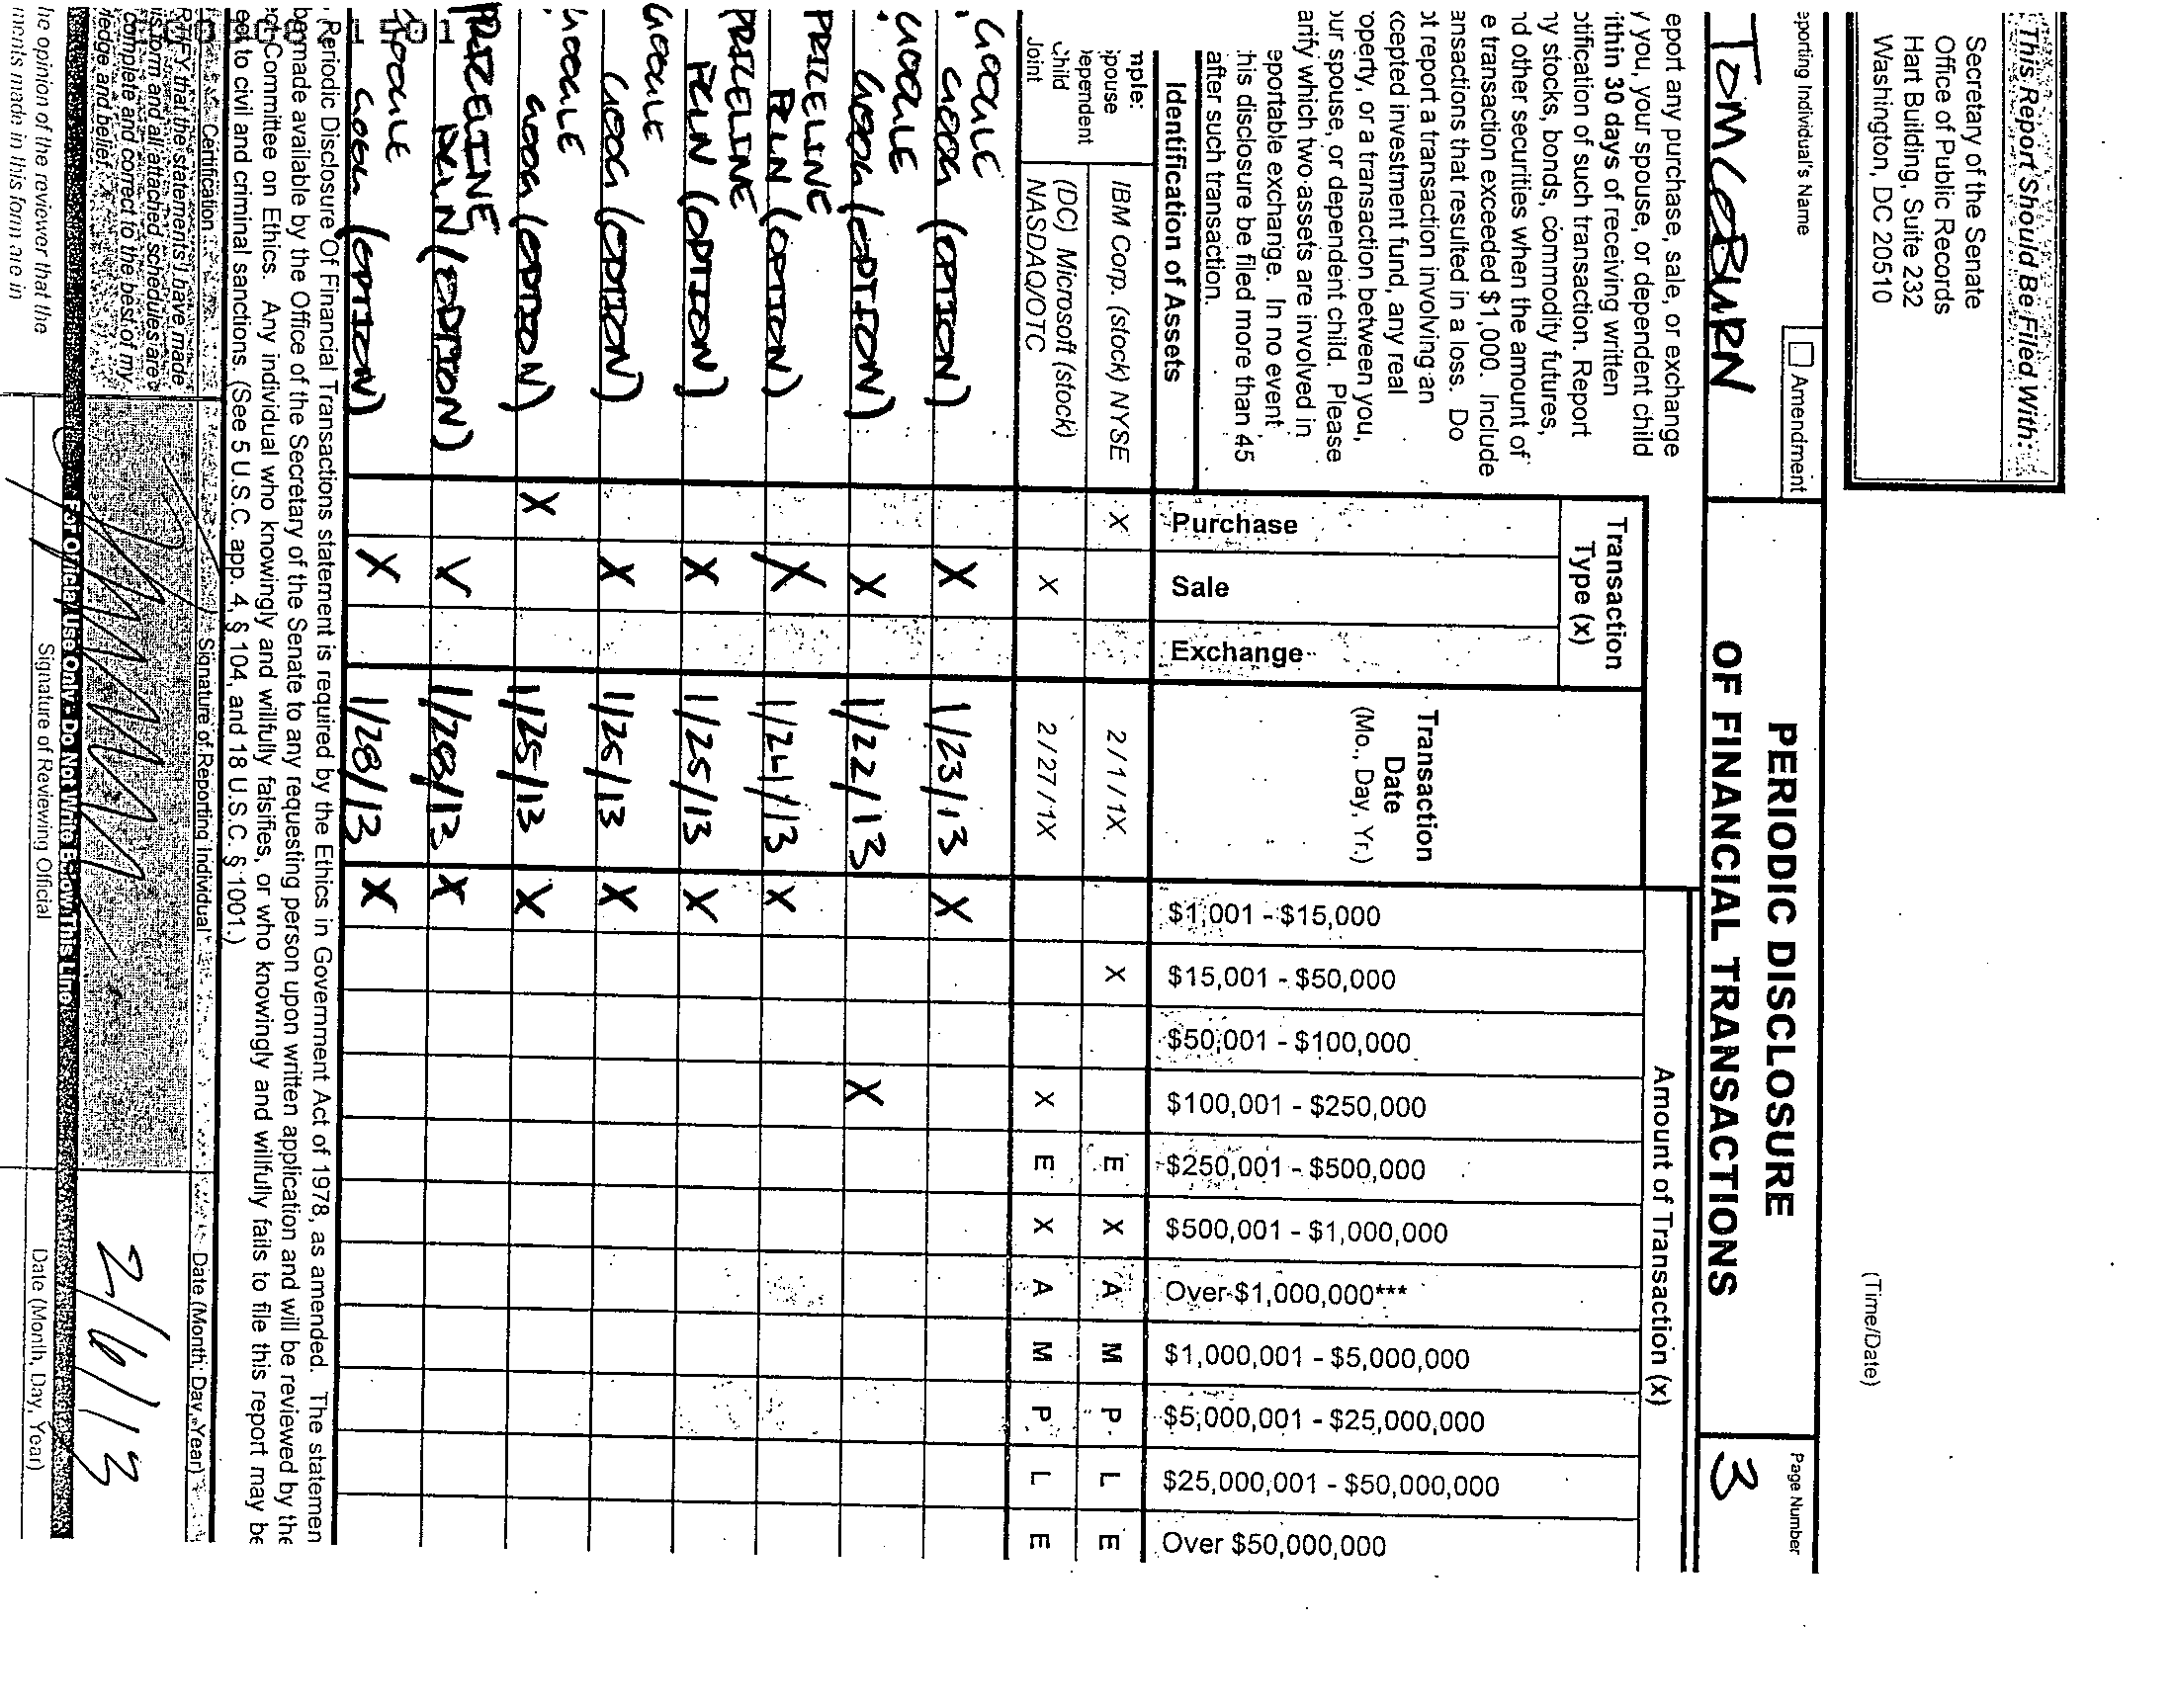 This Report Should Be Filed With:
Secretary of the Senate
Office of Public Records
Hart Building, Suite 232
Washington, DC 20510
(Time/Date)
eporting Individual's Name
Amendment
TOM COBURN
PERIODIC DISCLOSURE
OF FINANCIAL TRANSACTIONS
Page Number
3
eport any purchase, sale, or exchange
y you, your spouse, or dependent child
ithin 30 days of receiving written
otification of such transaction. Report
ny stocks, bonds, commodity futures,
nd other securities when the amount of
e transaction exceeded $1,000. Include
ansactions that resulted in a loss. Do
ot report a transaction involving an
xcepted investment fund, any real
operty, or a transaction between you,
our spouse, or dependent child. Please
arify which two assets are involved in
eportable exchange. In no event
his disclosure be filed more than 45
after such transaction.
Identification of Assets
Transaction
Type (x)
Purchase
Sale
Exchange
Transaction
Date
(Mo., Day, Yr.)
Amount of Transaction (x)
$1,001 - $15,000
$15,001 - $50,000
$50,001 - $100,000
$100,001 - $250,000
$250,001 - $500,000
$500,001 - $1,000,000
Over $1,000,000***
$1,000,001 - $5,000,000
$5,000,001 - $25,000,000
$25,000,001 - $50,000,000
Over $50,000,000
mple:
pouse
ependent
Child
Joint
IBM Corp. (stock) NYSE X 2/1/1X X E X A M P L E
(DC) Microsoft (stock)
NASDAQ/OTC X 2/27/1X X E X A M P L E
GOOGLE
GOOG (OPTION) X 1/23/13 X
GOOGLE
GOOG (OPTION) X 1/22/13 X
PRICELINE
PCLN (OPTION) X 1/24/13 X
PRICELINE
PCLN (OPTION) X 1/25/13 X
GOOGLE
GOOG (OPTION) X 1/25/13 X
GOOGLE
GOOG (OPTION) X 1/25/13 X
PRICELINE
PCLN (OPTION) X 1/28/13 X
GOOGLE
GOOG (OPTION) X 1/28/13 X
Periodic Disclosure Of Financial Transactions statement is required by the Ethics in Government Act of 1978, as amended. The statemen
be made available by the Office of the Secretary of the Senate to any requesting person upon written application and will be reviewed by the
ect Committee on Ethics. Any individual who knowingly and willfully falsifies, or who knowingly and willfully fails to file this report may be
ect to civil and criminal sanctions. (See 5 U.S.C. app. 4, § 104, and 18 U.S.C. § 1001.)
Certification
Signature of Reporting Individual
Date (Month, Day, Year)
RTIFY that the statements I have made
is form and all attached schedules are
complete and correct to the best of my
ledge and belief.
2/6/13
For Official Use Only - Do Not Write Below This Line
he opinion of the reviewer that the
ments made in this form are in
Signature of Reviewing Official
Date (Month, Day, Year)